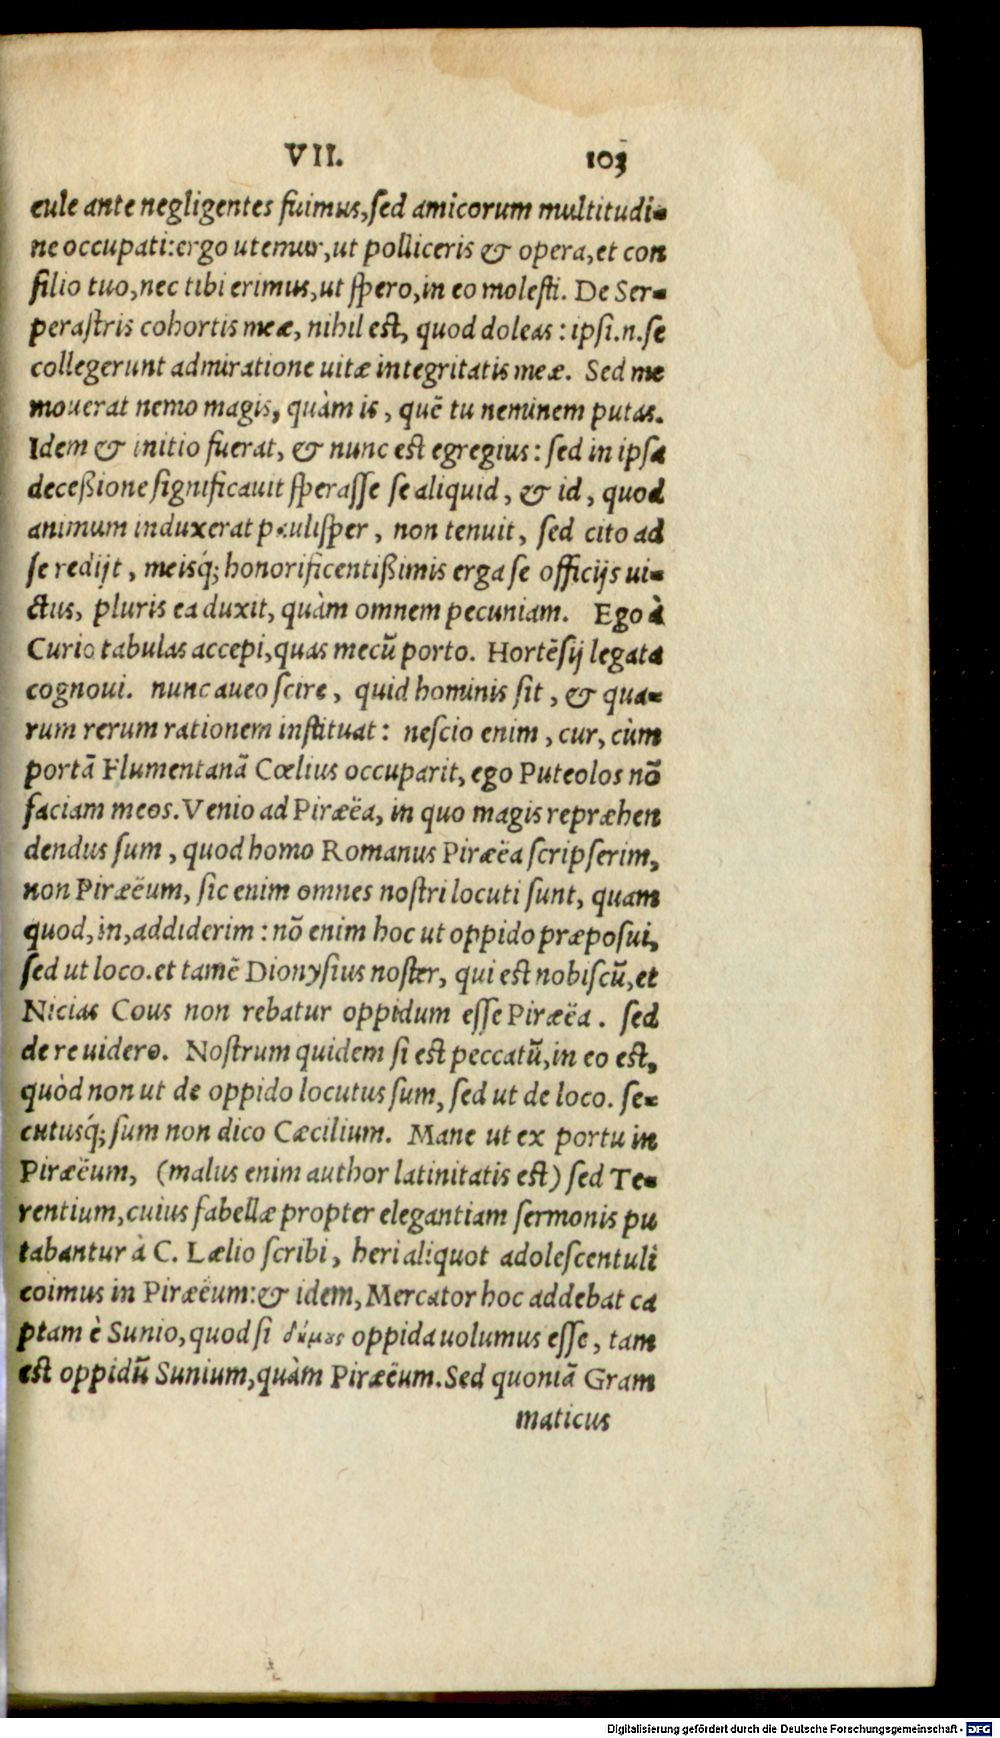 VII. 103
cule ante negligentes fuimus, sed amicorum multitudi-
ne occupati: ergo utemur, ut polliceris & opera, et con
silio tuo, nec tibi erimus, ut spero, in eo molesti. De Ser-
perastris cohortis meæ, nihil est, quod doleas: ipsi.n.se
collegerunt admiratione uitæ integritatis meæ. Sed me
mouerat nemo magis, quàm is, quē tu neminem putas.
Idem & initio fuerat, & nunc est egregius: sed in ipsa
deceßione significauit sperasse se aliquid, & id, quod
animum induxerat paulisper, non tenuit, sed cito ad
se redijt, meisq́; honorificentißimis erga se officijs ui-
ctus, pluris ea duxit, quàm omnem pecuniam. Ego à
Curio tabulas accepi, quas mecū porto. Hortēsij legata
cognoui. nunc aueo scire, quid hominis sit, & qua-
rum rerum rationem instituat: nescio enim, cur, cùm
portā Flumentanā Cœlius occuparit, ego Puteolos nō
faciam meos. Venio ad Piræëa, in quo magis repræhen
dendus sum, quod homo Romanus Piræëa scripserim,
non Piræëum, sic enim omnes nostri locuti sunt, quam
quod, in, addiderim: nō enim hoc ut oppido præposui,
sed ut loco. et tamē Dionysius noster, qui est nobiscū, et
Nicias Cous non rebatur oppidum esse Piræëa. sed
de re uidero. Nostrum quidem si est peccatū, in eo est,
quòd non ut de oppido locutus sum, sed ut de loco. se-
cutusq́; sum non dico Cæcilium. Mane ut ex portu in
Piræëum, (malus enim author latinitatis est) sed Te-
rentium, cuius fabellæ propter elegantiam sermonis pu
tabantur à C. Lælio scribi, heri aliquot adolescentuli
coimus in Piræëum: & idem, Mercator hoc addebat ca
ptam è Sunio, quod si δήμους oppida uolumus esse, tam
est oppidū Sunium, quàm Piræëum. Sed quoniā Gram
maticus
Digitalisierung gefördert durch die Deutsche Forschungsgemeinschaft - DFG